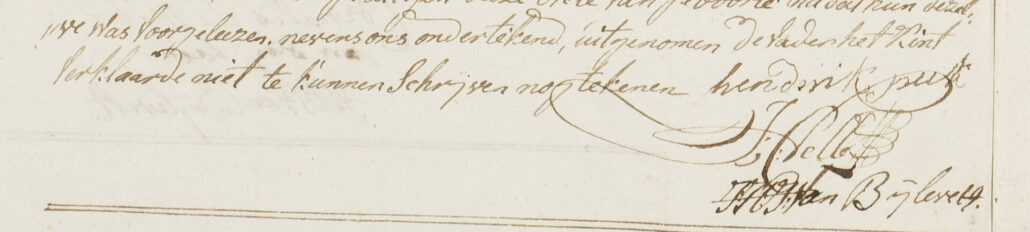 deze acte van geboorte nadat hun dezel,
,,ve was voorgeleezen. nevens ons ondertekend, uitgenomen de vader het kint
verklaarde niet te kunnen schrijven nog tekenen hendrik
van Bijlevelt.